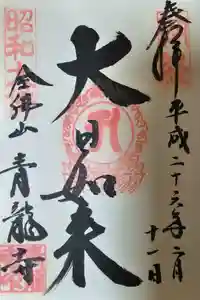 奉拝 平成二十六年二月
十一日
大日如来
昭和
全佛山 青龍寺